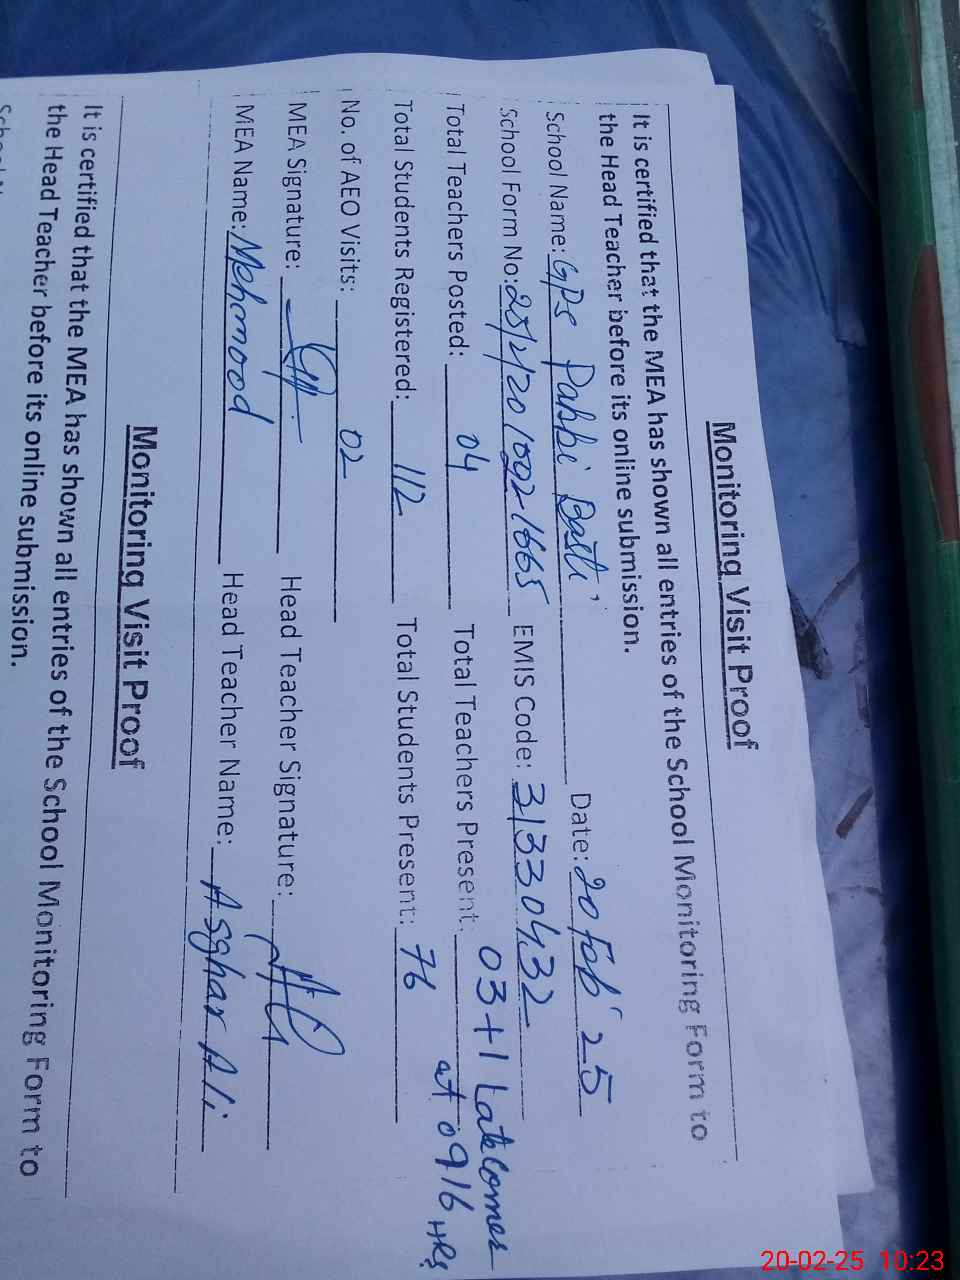 Monitoring Visit Proof
It is certified that the MEA has shown all entries of the School Monitoring Form to
the Head Teacher before its online submission.
School Name: GPS Pakki Basti Date: 20 Feb' 25
School Form No: EMIS Code: 31330432
Total Teachers Posted: 04 Total Teachers Present: 03+1 Latecomer
at 0916 HRs
Total Students Registered: 112 Total Students Present: 76
No. of AEO Visits: 02
MEA Signature: Head Teacher Signature:
MEA Name: Mehmood Head Teacher Name: Asghar Ali
Monitoring Visit Proof
It is certified that the MEA has shown all entries of the School Monitoring Form to
the Head Teacher before its online submission.
20-02-25 10:23